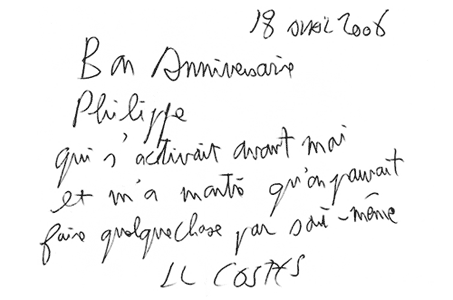 18 avril 2006
Bon Anniversaire
Philippe
qui s'activait avant moi
et m'a montré qu'on pouvait
faire quelque chose par soi-même
LL COSTES